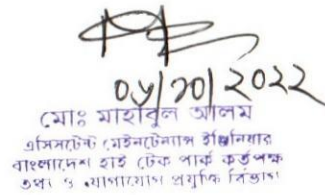 ০৬/১০/২০২২
মোঃ মাহাবুল আলম
এসিসটেন্ট মেইনটেন্যান্স ইঞ্জিনিয়ার
বাংলাদেশ হাই টেক পার্ক কর্তৃপক্ষ
তথ্য ও যোগাযোগ প্রযুক্তি বিভাগ